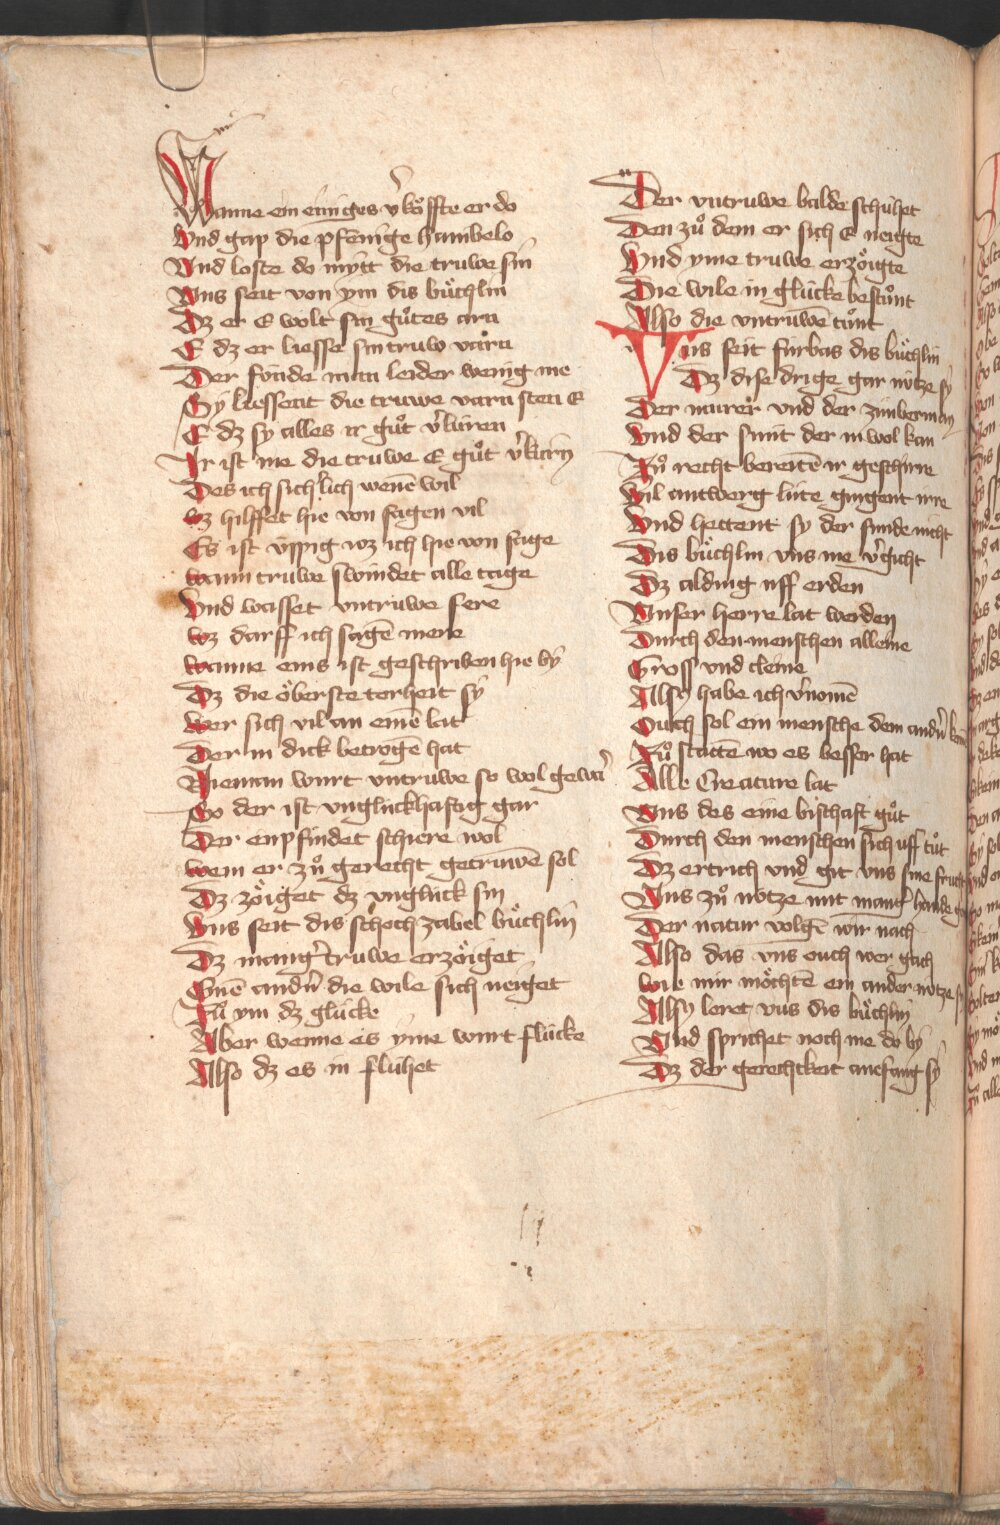 Wanne ein einiges v̓koͤffte er do
Vnd gap die pfenige hambelo
Vnd loste do mytt die truwe sin
Vns seit von ym dis buͤchlin
Dz er E wolt sin guͦtes arn
E dz er liesse sin truw varn
Der fonde man leider wenig me
Sy liessent die truwe varn sten E
E dz sy alles ir guͦt v̓luren
Ir ist me die truwe E guͦt v̓kurn
Des ich sich̓lich wenē wil
wz hilffet hie von sagen vil
Es ist v̈ppig wz ich hie von sage
wann truwe swindet alle tage
Vnd wasset vntruwe sere
wz darff ich sagē mere
wanne eins ist geschriben hie by
Dz die oͤberste torheit sy
wer sich vil an einē lat
Der in dick betrogē hat
Nieman wurt vntruwe so wol gewar̓
So der ist vnglückhafftig gar
Der enpfindet schiere wol
wem er zuͦ gerecht getruwē sol
Dz zoͤiget dz vnglück sin
Vns seit dis schochzabel buͤchlin
Dz mang̓ truwe erzoͤiget
Einē andn̓ die wile sich neiget
Zuͦ ym dz glücke
Aber wenne es yme wurt flücke
Also dz es in flühet
Der vntruwe balde schühet
Den zuͦ dem er sich E neigte
Vnd yme truwe erzoͤigte
Die wile in glücke bestuͦnt
Also die vntruwē tuͦnt
Vns seit fürbas dis buͤchlin
Dz dise drige gar nütze sy
Der murer vnd der zimberman
Vnd der smit der in wol kan
Zuͦ recht bereitē ir geschirre
Vil antwerg lüte gingent irre
Vnd hettent sy der smide nicht
Dis buͤchlin vns me v̓gicht
Dz alding uff erden
Vnser herre lat werden
Durch den menschen alleine
Gross vnd cleine
Alsy habe ich v̓nomē
Ouch sol ein mensche dem andn̓
Zuͦ stattē wo es besser hat
Alle Creature lat
Vns des eine bischaft guͦt
Durch den menschen sich uff tuͦt
Dz ertrich vnd git vns sine frucht
Vns zuͦ notze mit mang̓ hande
Der natur volgē wir nach
Also das vns ouch wer gach
wie mir moͤchtē ein ander nütze sy
Alsy leret vns dis buͤchlin
Vnd sprichet noch me do by
Dz der gerechtkeit anefang sy